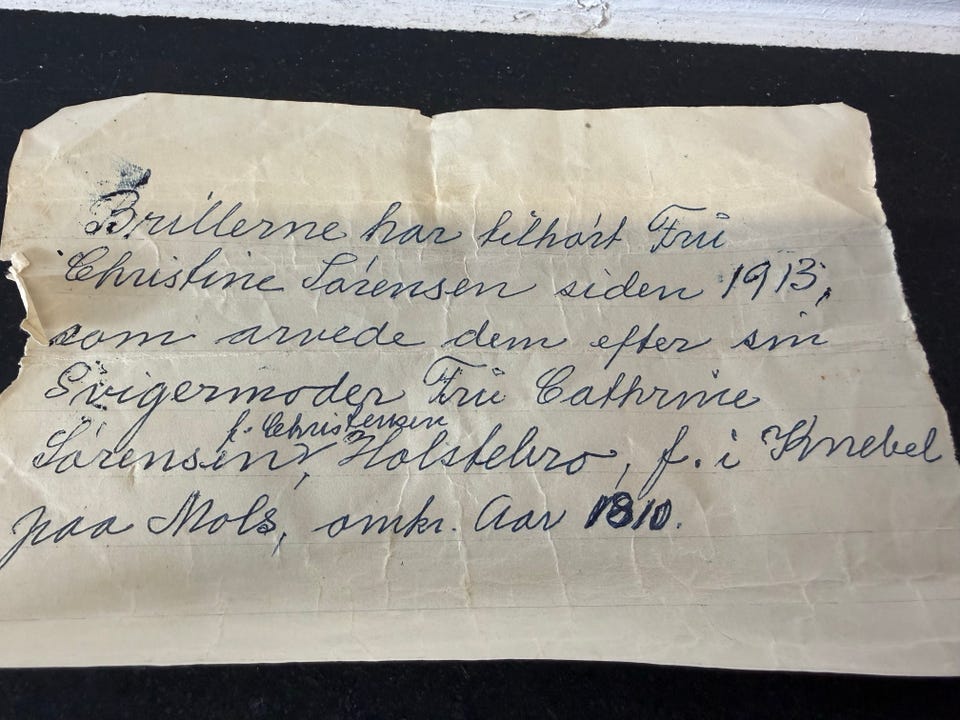 Brillerne har tilhørt Frú
Christine Sørensen siden 1913,
som arvede dem efter sin
Svigermoder Frú Cathrine
f. Christensen
Sørensen, Holstebro, f. i Knebel
paa Mols, omkr. Aar 1810.